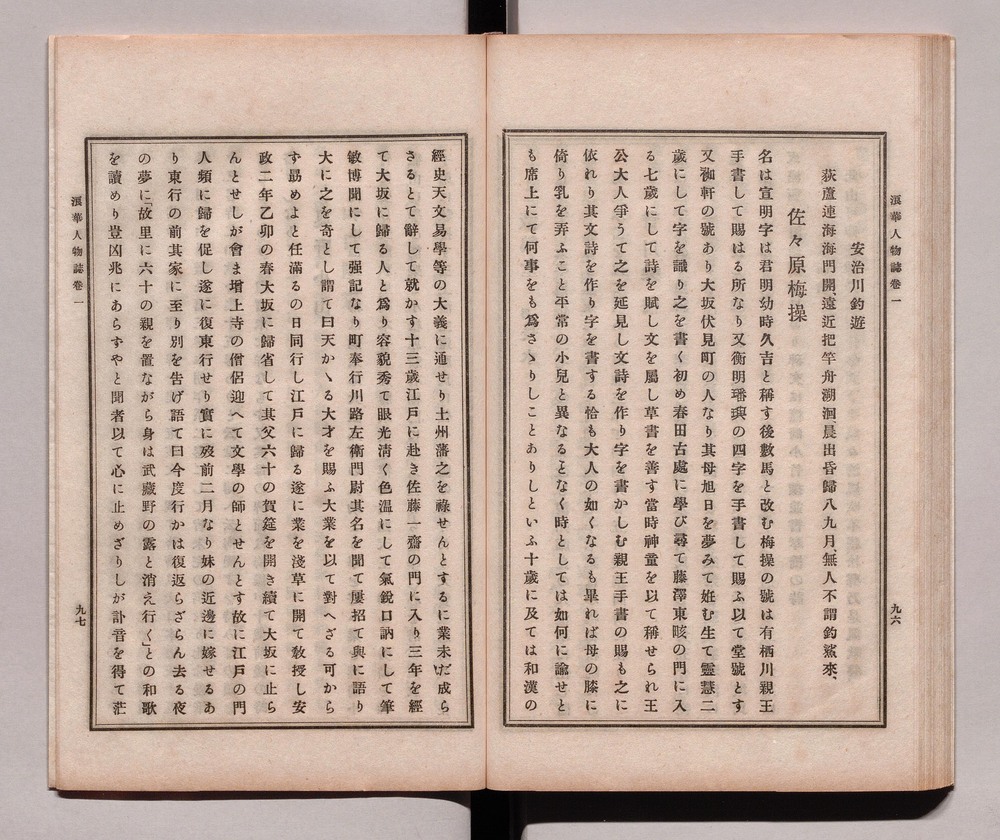 浪華人物誌卷一
九六
安治川釣遊
荻蘆連海海門開、遠近把竿舟溯洄、晨出昏歸八九月、無人不謂釣鯊來、
佐々原梅操
名は宣明字は君明幼時久吉と稱す後數馬と改む梅操の號は有栖川親王
手書して賜はる所なり又衡明璠璵の四字を手書して賜ふ以て堂號とす
又軒の號あり大坂伏見町の人なり其母旭日を夢みて姙む生て靈慧二
歲にして字を識り之を書く初め春田古處に學び尋て藤澤東畡の門に入
る七歲にして詩を賦し文を屬し草書を善す當時神童を以て稱せられ王
公大人爭うて之を延見し文詩を作り字を書かしむ親王手書の賜も之に
依れり其文詩を作り字を書する恰も大人の如くなるも畢れば母の膝に
倚り乳を弄ふこと平常の小兒と異なることなく時としては如何に諭せと
も席上にて何事をも爲さゝりしことありしといふ十歲に及ては和漢の
經史天文易學等の大義に通せり土州藩之を祿せんとするに業未だ成ら
さるとて辭して就かす十三歲江戶に赴き佐藤一齋の門に入り三年を經
て大坂に歸る人と爲り容貌秀て眼光淸く色溫にして氣銳口訥にして筆
敏博聞にして强記なり町奉行川路左衞門尉其名を聞て屢招て與に語り
大に之を奇とし謂て曰天かゝる大才を賜ふ大業を以て對へざる可から
ず勗めよと任滿るの日同行し江戶に歸る遂に業を淺草に開て敎授し安
政二年乙卯の春大坂に歸省して其父六十の賀筵を開き續て大坂に止ら
んとせしが會ま增上寺の僧侶迎へて文學の師とせんとす故に江戶の門
人頻に歸を促し遂に復東行せり實に歿前二月なり妹の近邊に嫁せるあ
り東行の前其家に至り別を吿げ語て曰今度行かは復返らざらん去る夜
の夢に「故里に六十の親を置ながら身は武藏野の露と消え行く」との和歌
を讀めり豈凶兆にあらずやと聞者以て心に止めざりしが訃音を得て茫
浪華人物誌卷一
九七